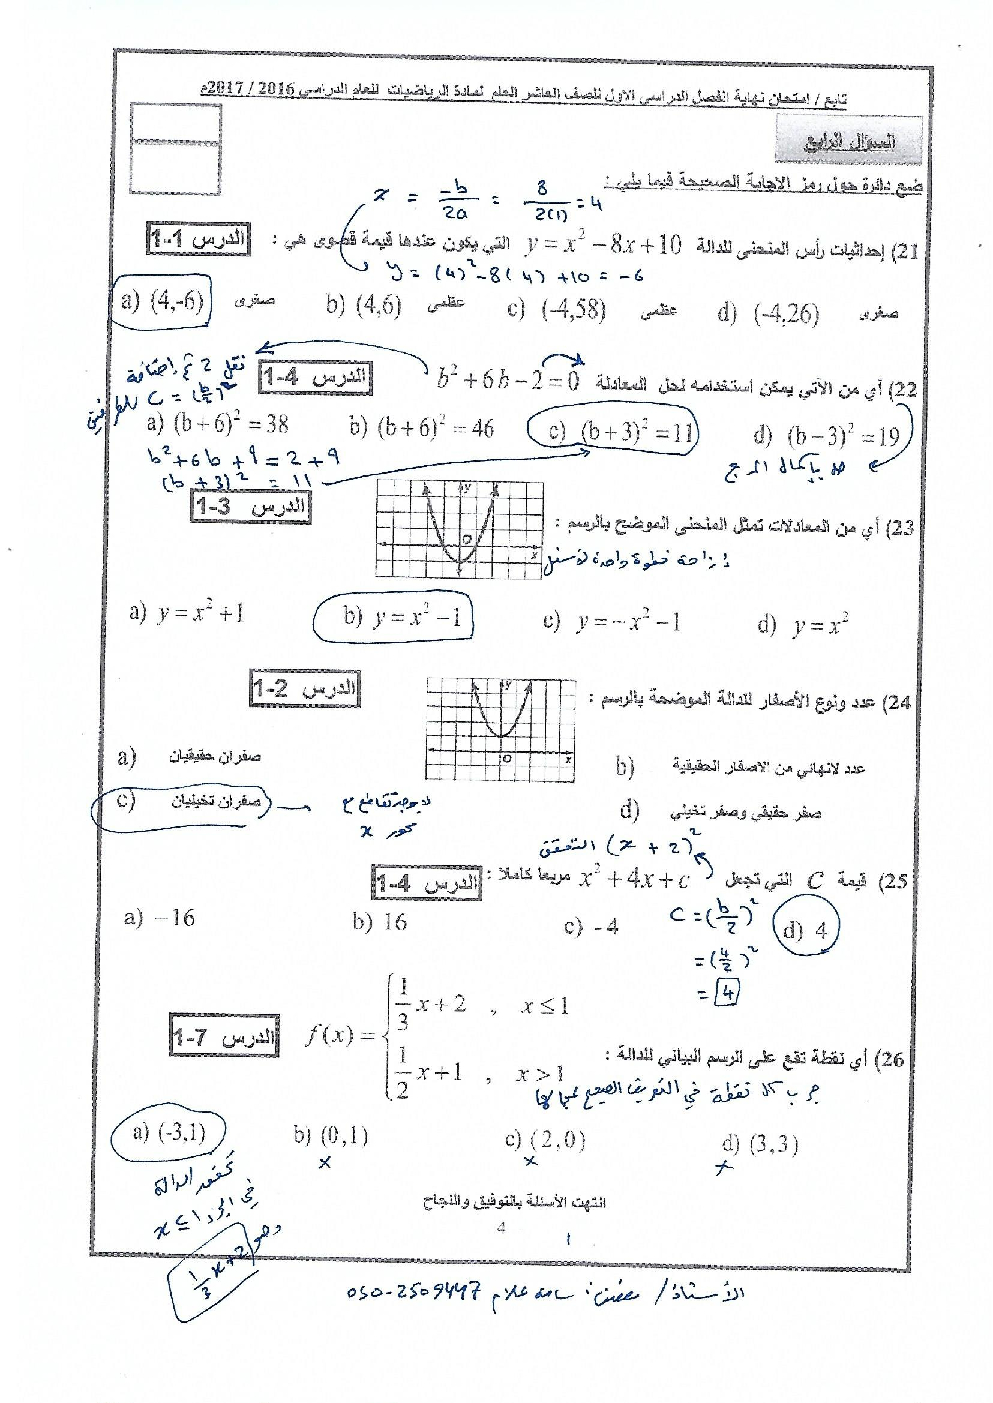 تابع / امتحان نهاية الفصل الدراسي الأول للصف العاشر العام لمادة الرياضيات للعام الدراسي 2016 / 2017م
السؤال الرابع
ضع دائرة حول رمز الاجابة الصحيحة فيما يلي :
x = -b/2a = 8/2(1) = 4
21) إحداثيات رأس المنحنى للدالة y = x² − 8x + 10 التي يكون عندها قيمة قصوى هي : الدرس 1-1
y = (4)² - 8(4) + 10 = -6
a) (4,-6) صغرى b) (4,6) عظمى c) (-4,58) عظمى d) (-4,26) صغرى
22) أي من الآتي يمكن استخدامه لحل المعادلة b² + 6b − 2 = 0 الدرس 4-1
نقل 2 ثم إضافة
C = (b/2)² للطرفين
a) (b + 6)² = 38 b) (b + 6)² = 46 c) (b + 3)² = 11 d) (b − 3)² = 19
b² + 6b + 9 = 2 + 9
(b + 3)² = 11
بإكمال المربع
23) أي من المعادلات تمثل المنحنى الموضح بالرسم : الدرس 3-1
y
O
x
إزاحة خطوة واحدة لأسفل
a) y = x² + 1 b) y = x² − 1 c) y = − x² − 1 d) y = x²
24) عدد ونوع الأصفار للدالة الموضحة بالرسم : الدرس 2-1
y
O
x
a) صفران حقيقيان b) عدد لانهائي من الاصفار الحقيقية
c) صفران تخيليان d) صفر حقيقي وصفر تخيلي
لا يوجد تقاطع مع
محور x
التحقق (x + 2)²
25) قيمة C التي تجعل x² + 4x + c مربعا كاملا : الدرس 4-1
a) −16 b) 16 c) -4 d) 4
C = (b/2)²
= (4/2)²
= 4
26) أي نقطة تقع على الرسم البياني للدالة : f(x) = { 1/3 x + 2 , x ≤ 1 الدرس 7-1
1/2 x + 1 , x > 1
جرب كل نقطة في التعريف الصحيح
a) (-3,1) b) (0,1) c) (2,0) d) (3,3)
x x x
تحقق الدالة
في الجزء x ≤ 1
وهو 1/3 x + 2
انتهت الأسئلة بالتوفيق والنجاح
4
1
الأستاذ / علام 050-2509447